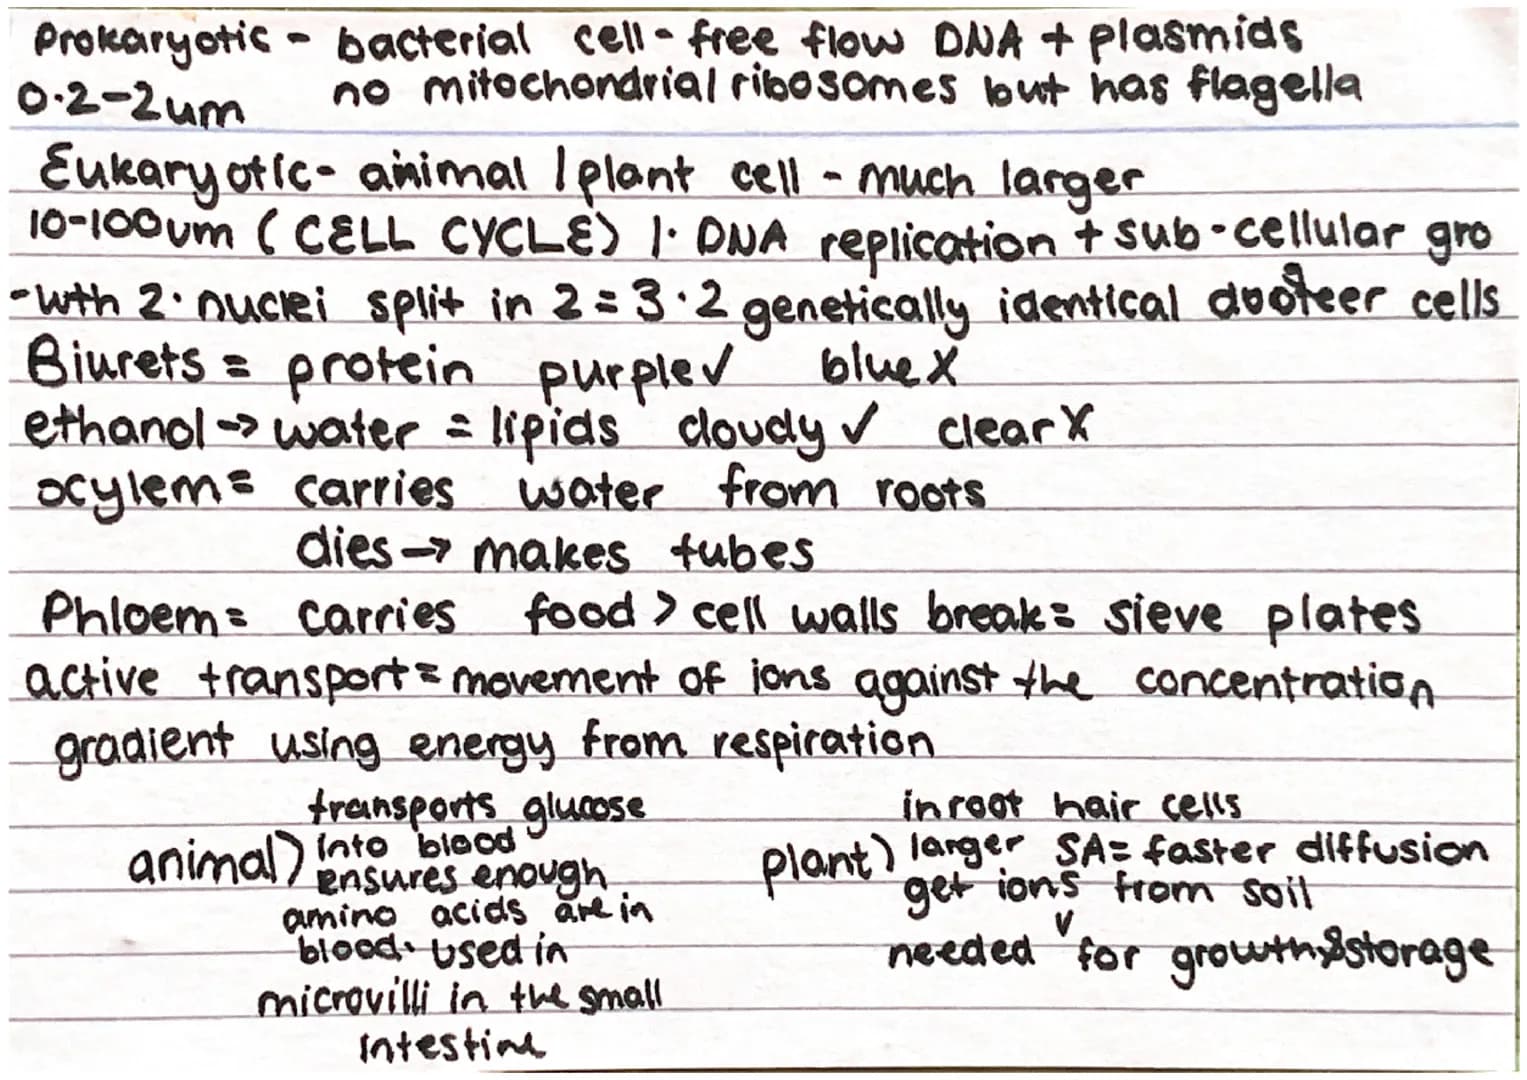 Prokaryotic - bacterial cell - free flow DNA + plasmids
0.2-2um no mitochondrial ribosomes but has flagella
Eukaryotic - animal / plant cell - much larger
10-100um ( CELL CYCLE) 1. DNA replication + sub-cellular gro
-wth 2. nuclei split in 2 = 3.2 genetically identical cells
Biurets = protein purple✓ blue X
ethanol -> water = lipids cloudy ✓ clear X
xylem = carries water from roots
dies -> makes tubes
Phloem = carries food > cell walls break = sieve plates
active transport = movement of ions against the concentration
gradient using energy from respiration
transports glucose
animal) into blood
ensures enough
amino acids are in
blood. used in
microvilli in the small
intestine
in root hair cells
plant) larger SA = faster diffusion
get ions from soil
v
needed for growth & storage